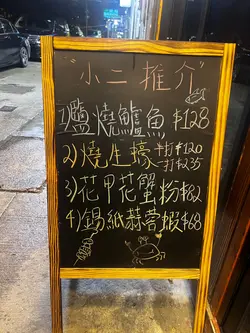 "小二推介"
1)鑪燒鱸魚$128
2)燒生蠔半打$120
一打$235
3)花甲花蟹粉$82
4)錫紙蒜蓉蝦$68